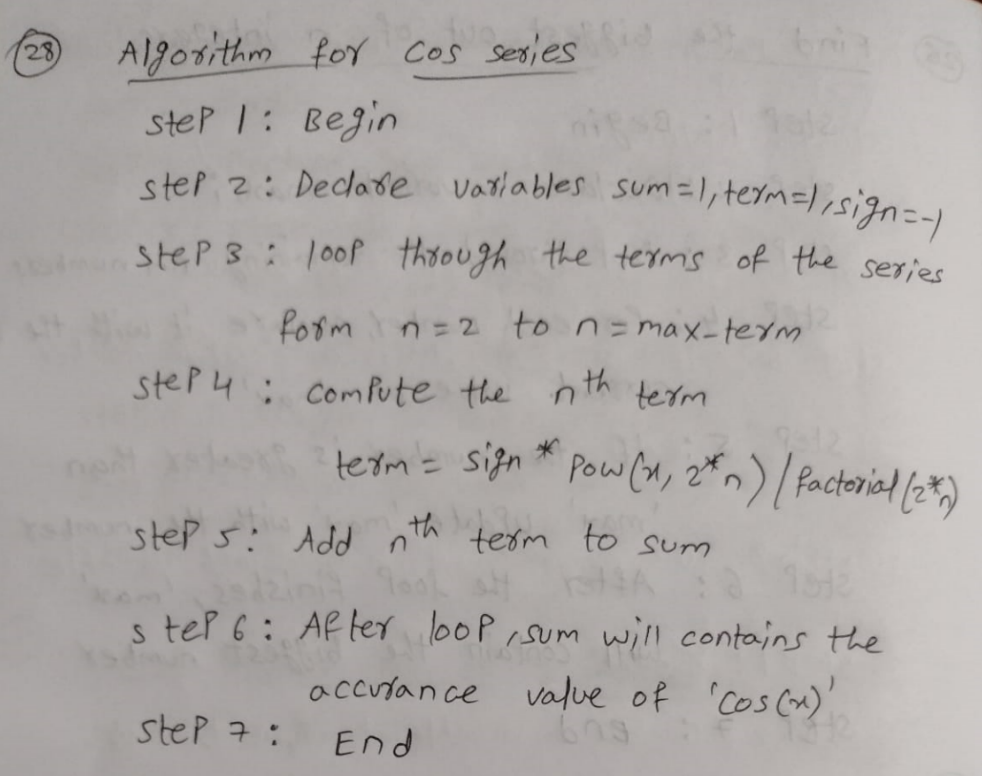 28 Algorithm for cos series
step 1 : Begin
step 2 : Declare variables sum=1, term=1, sign=-1
step 3 : loop through the terms of the series
form n=2 to n=max-term
step 4 : compute the nth term
term = sign * pow(x, 2*n) / factorial(2*n)
step 5 : Add nth term to sum
step 6 : After loop, sum will contains the
accurance value of 'cos(x)'
step 7 : End